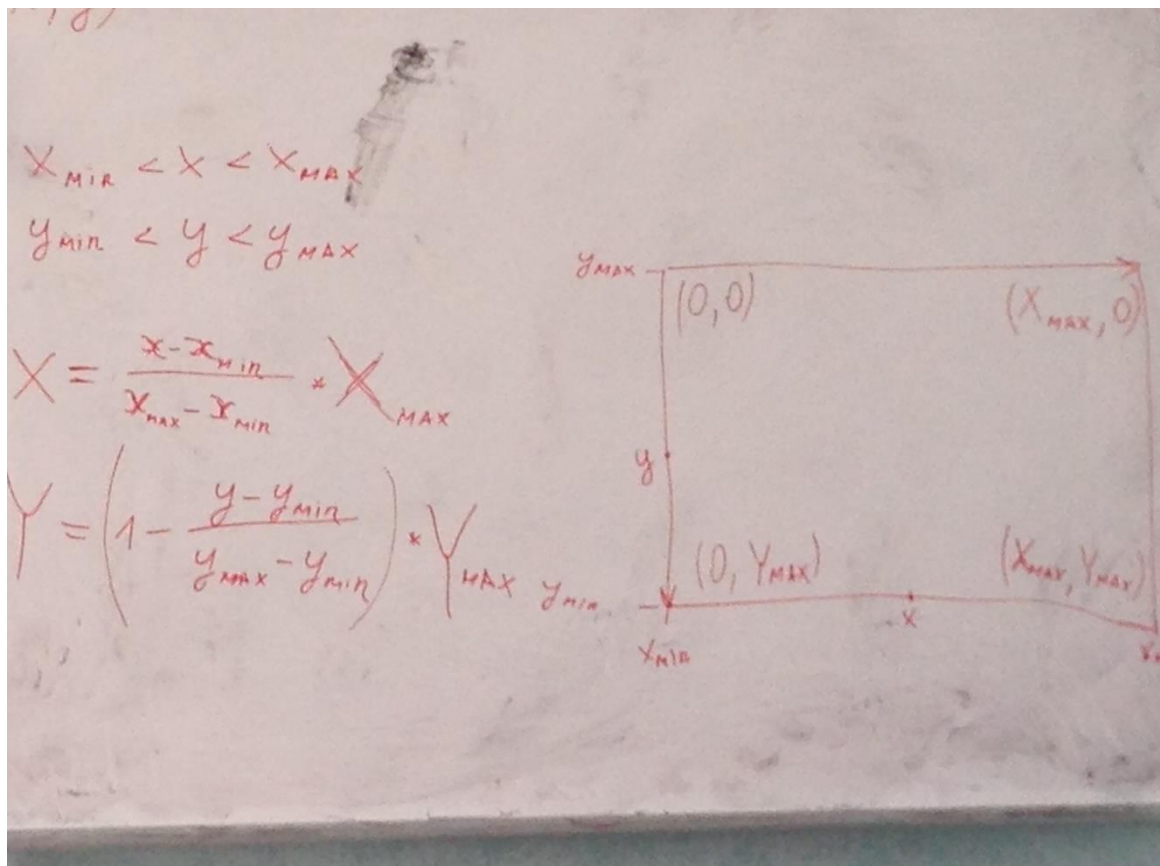 x_min < x < x_max
y_min < y < y_max
X = (x - x_min) / (x_max - x_min) * X_MAX
Y = (1 - (y - y_min) / (y_max - y_min)) * Y_MAX
y_MAX
(0,0) (X_MAX, 0)
y
(0, Y_MAX) (X_MAX, Y_MAX)
y_min
x
x_min